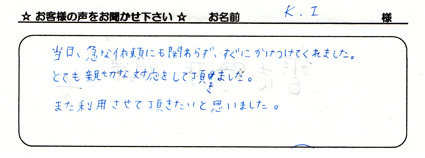 ☆ お客様の声をお聞かせ下さい ☆ お名前 K.I 様
当日、急な依頼にも関わらず、すぐにかけつけてくれました。
とても親切な対応をして頂きました。
また利用させて頂きたいと思いました。